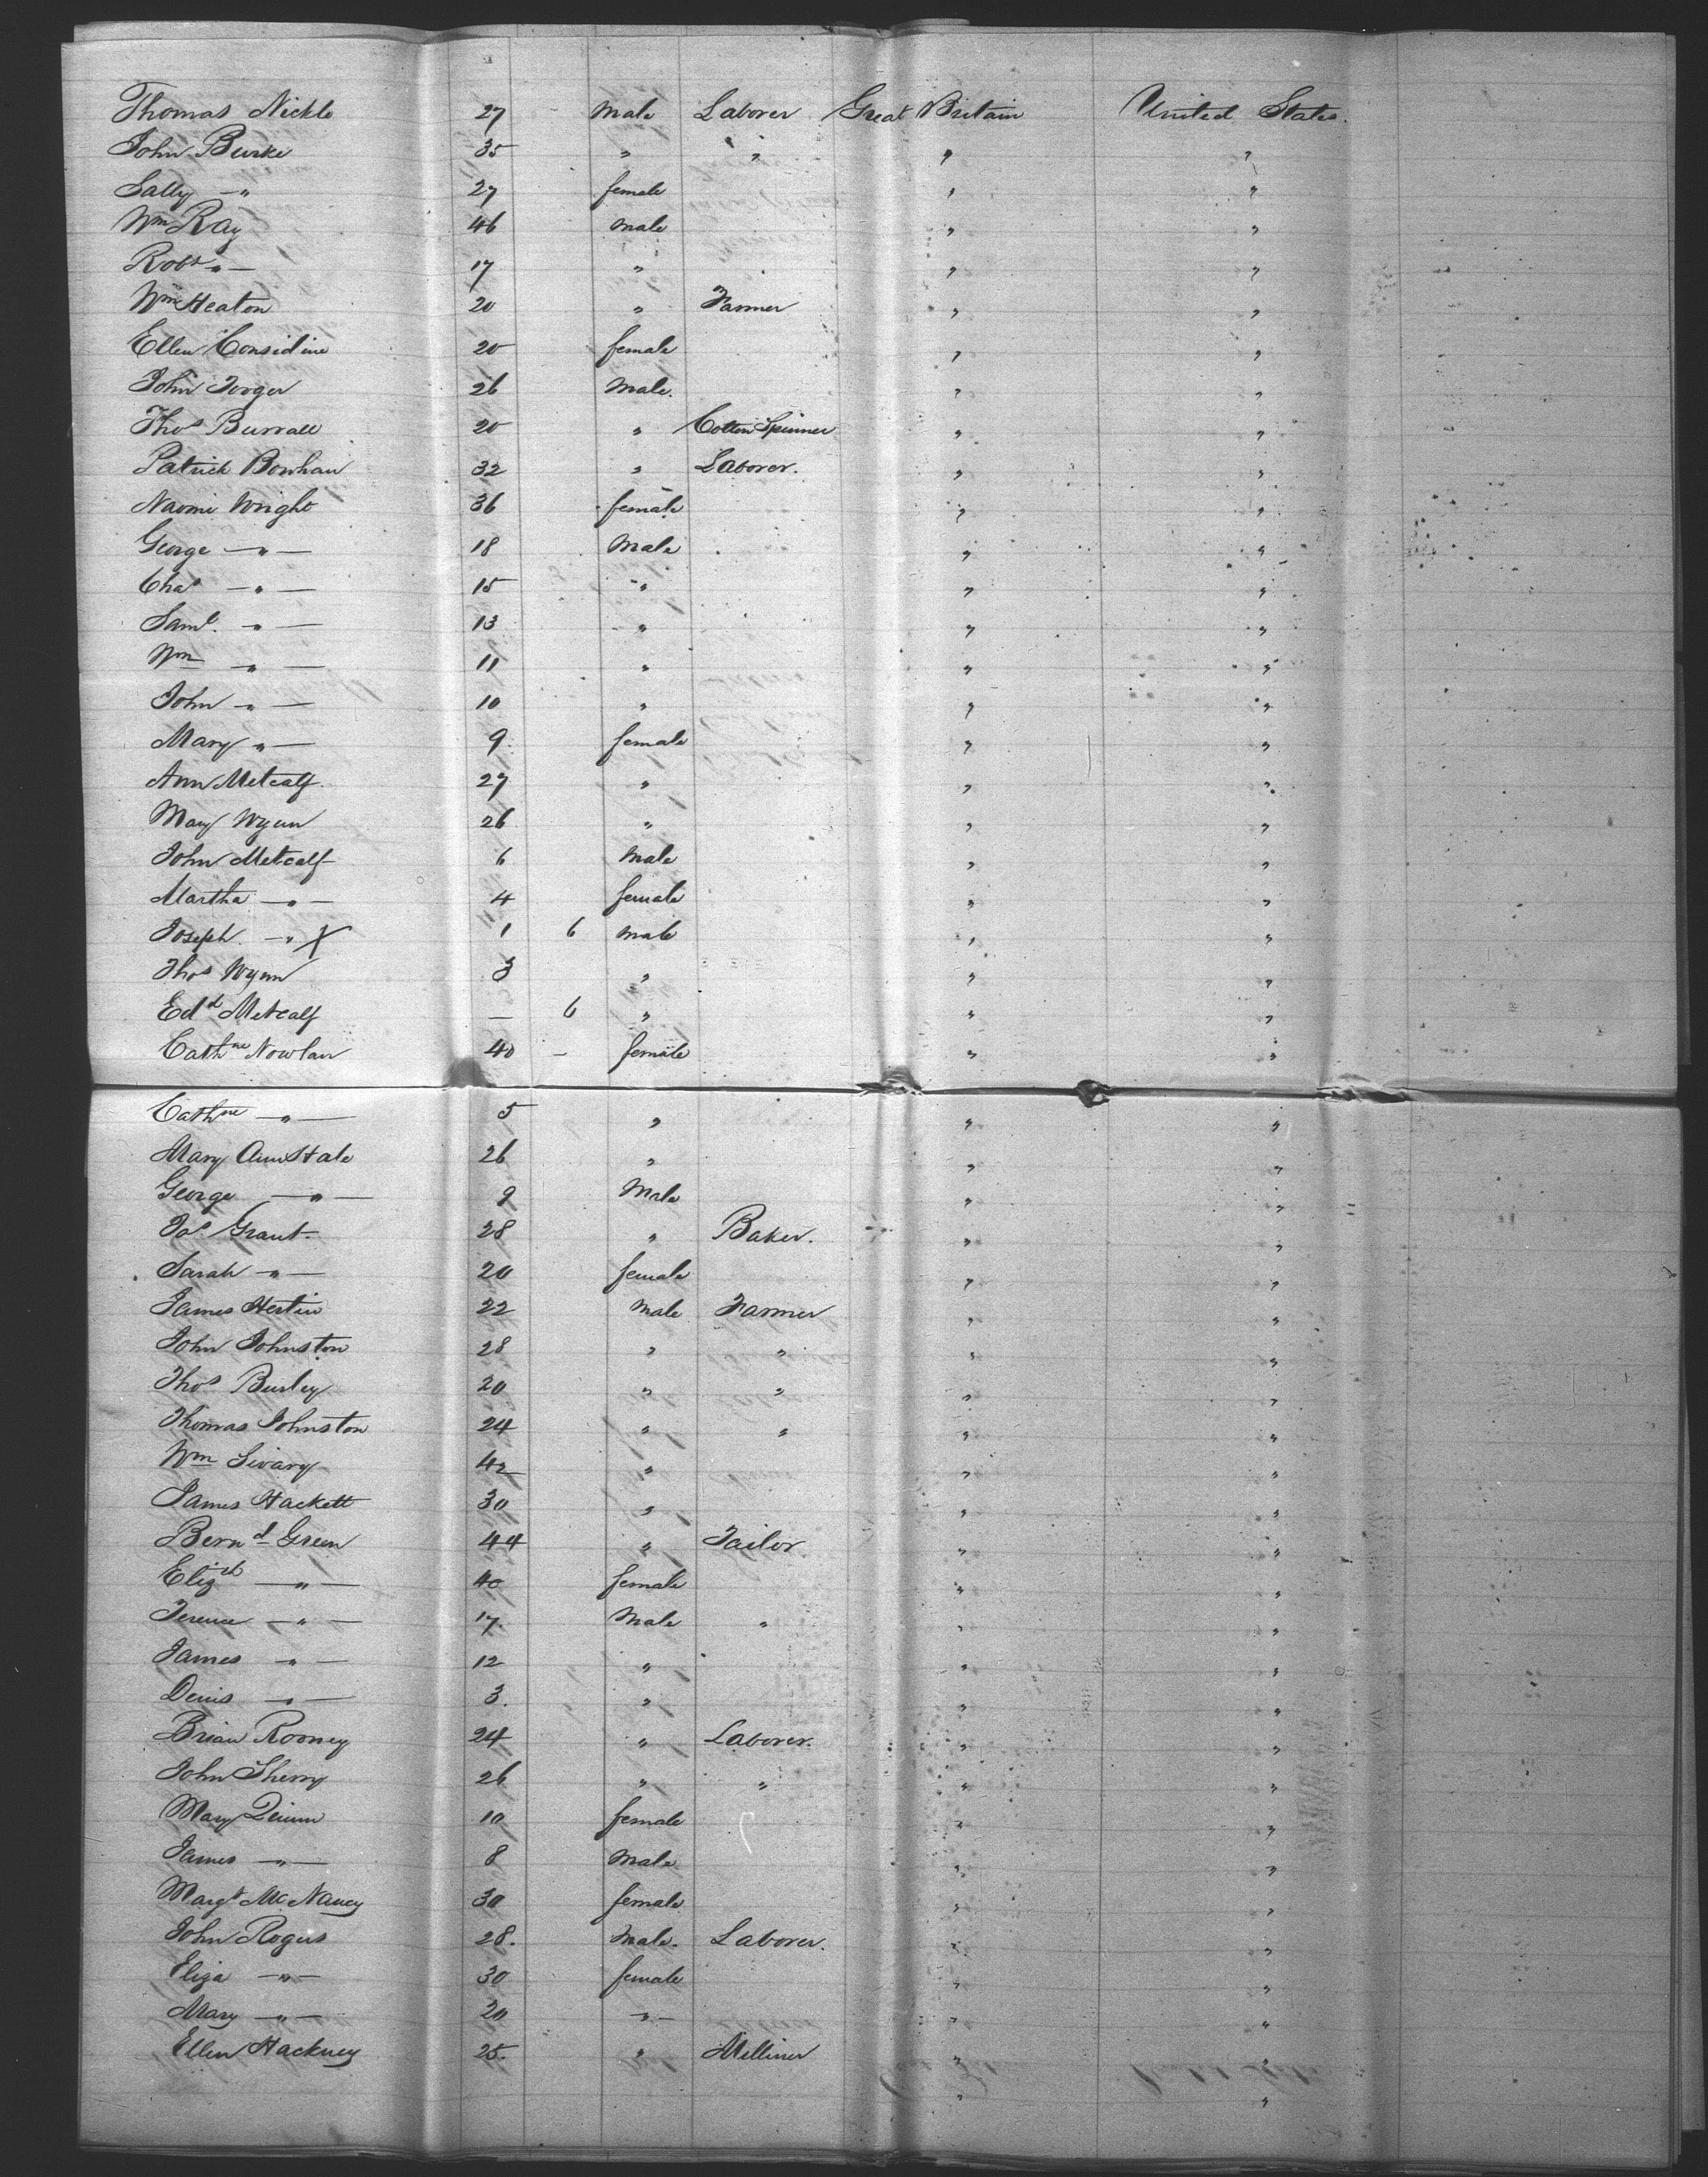 Thomas Nickle 27 - Male Laborer Great Britain United States.
John Burke 35 " " " "
Sally -"- 27 female " "
Wm Ray 46 Male " "
Robt -"- 17 " " "
Wm Heaton 20 " Farmer " "
Ellen Considine 20 female " "
John 26 Male. " "
Thos Burrall 20 " Cotton Spinner " "
Patrick 32 " Laborer. " "
Naomi Wright 36 female " "
George -"- 18 Male " "
Chas -"- 15 " " "
Saml. -"- 13 " " "
Wm -"- 11 " " "
John -"- 10 " " "
Mary -"- 9 female " "
Ann Metcalf 27 " " "
Mary Wynn 26 " " "
John Metcalf 6 Male " "
Martha -"- 4 female " "
Joseph -"- X 1 6 Male " "
Thos Wynn 3 " " "
Edd Metcalf - 6 " " "
Cathne Nowlan 40 - female " "
Cathne -"- 5 " " "
Mary Ann Hale 26 " " "
George -"- 9 Male " "
Jos Grant 28 " Baker. " "
Sarah -"- 20 female " "
James 22 Male Farmer " "
John Johnston 28 " " " "
Thos Burley 20 " " " "
Thomas Johnston 24 " " " "
Wm 42 " " "
James Hackett 30 " " "
Bernd Green 44 " Tailor " "
Elizth -"- 40 female " "
Terence -"- 17. Male " " "
James -"- 12 " " "
Denis -"- 3. " " "
Brian Rooney 24 " Laborer. " "
John Sherry 26 " " " "
Mary Quinn 10 female " "
James -"- 8 Male " "
Margt McNancy 30 female " "
John Rogers 28. Male. Laborer. " "
Eliza -"- 30 female " "
Mary -"- 20 -"- " "
Ellen Hackney 25. " Milliner " "
" "